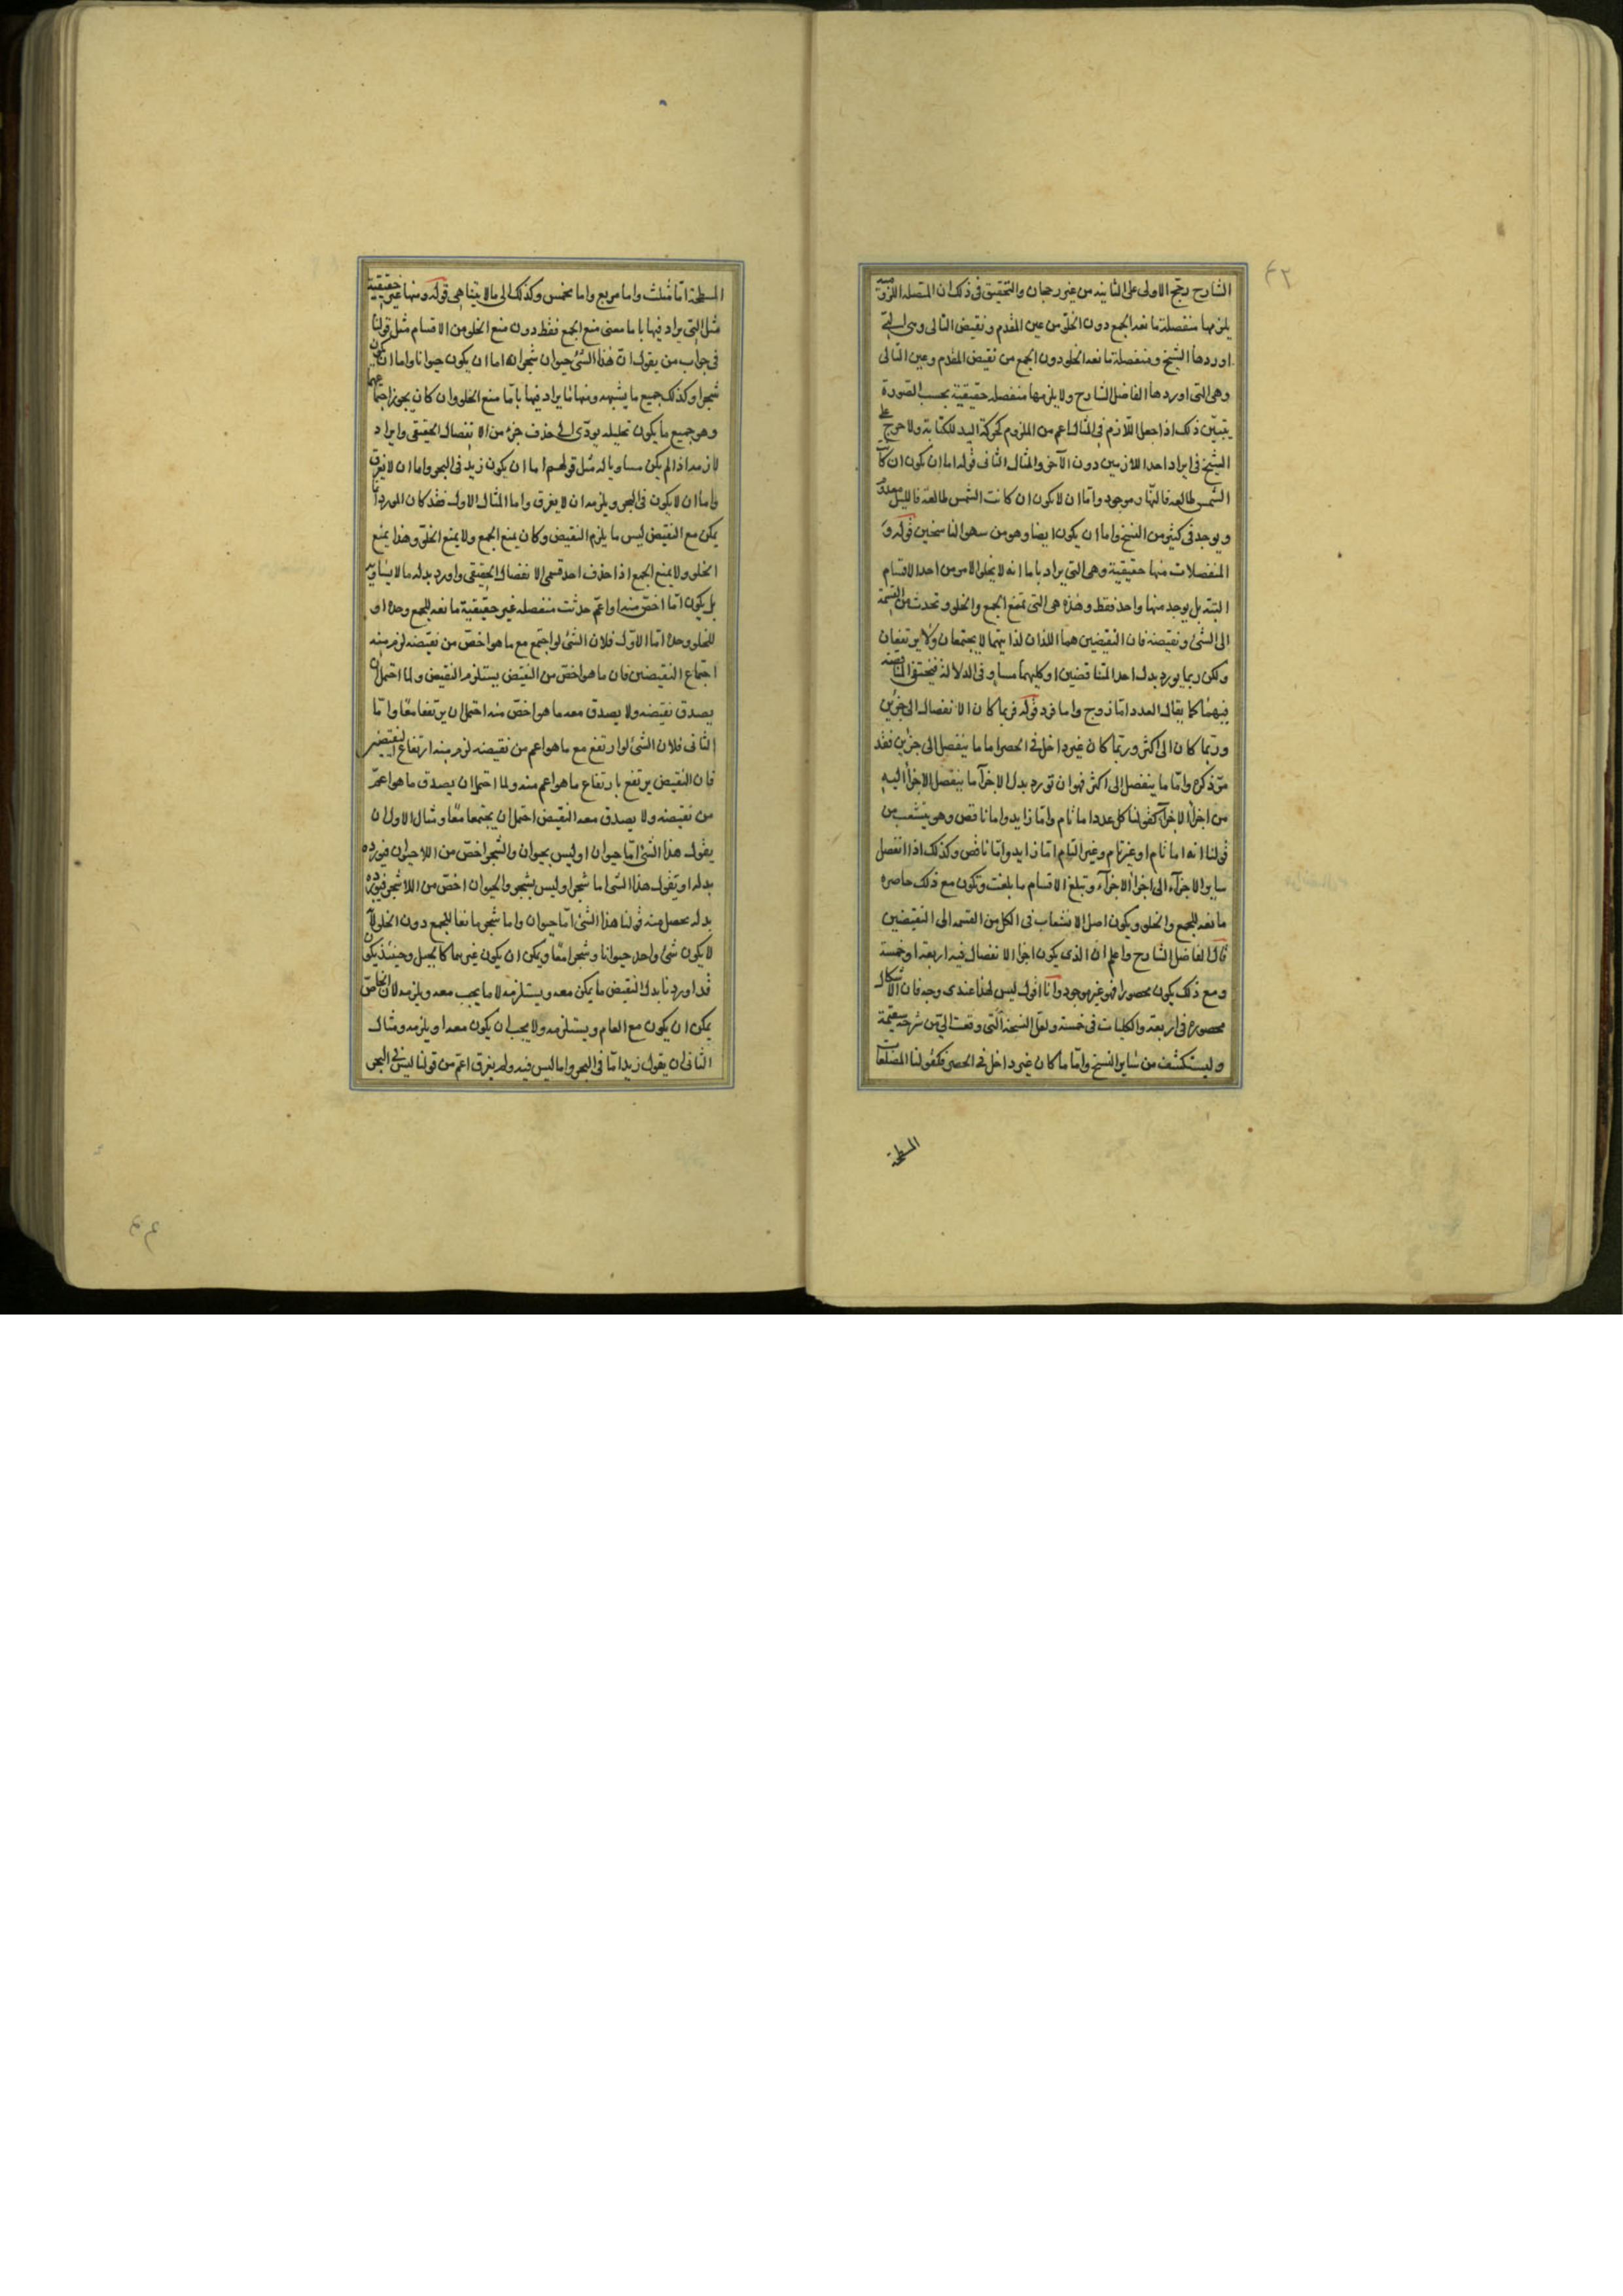 ٤٢
الشارح رجح الاولى على الثانيه من غير رجحان والتحقيق فى ذلك ان المتصله اللزومية
يلزمها منفصلة مانعه الجمع دون الخلو من عين المقدم ونقيض التالى وهى التى
اوردها الشيخ ومنفصلة مانعه الخلو دون الجمع من نقيض المقدم وعين التالى
وهى التى اوردها الفاضل الشارح ولا يلزمها منفصله حقيقية بحسب الصورة
يتبين ذلك اذا جعل اللازم فى المثال اعم من الملزوم كحركة اليد للكتابة ولا حرج على
الشيخ فى ايراد احد اللازمين دون الآخر والمثال الثانى قوله اما ان يكون ان كانت
الشمس طالعه فالنهار موجود واما ان لا يكون ان كانت الشمس طالعة فالليل معدوم
ويوجد فى كثير من النسخ واما ان يكون ايضا وهو من سهو الناسخين قوله و
المنفصلات منها حقيقية وهى التى يراد باما انه لا يخلو الامر من احد الاقسام
البتة بل يوجد منها واحد فقط وهذه هى التى تمنع الجمع والخلو وتحدث من القسمة
الى الشئ ونقيضه فان النقيضين هما اللذان لذاتيهما لا يجتمعان ولا يرتفعان
ولكن ربما يورد بدل احد المتناقضين او كليهما مساو فى الدلالة فيختفى المناقضه
بينهما كما يقال العدد اما زوج واما فرد قوله فربما كان الانفصال الى جزئين
وربما كان الى اكثر وربما كان غير داخل فى الحصر اما ما ينفصل الى جزئين فقد
مر ذكره واما ما ينفصل الى اكثر فهو ان تورد بدل الاجزآ ما ينفصل الاجزآ اليه
من اجزآ الاجزآ كقولنا كل عدد اما تام واما زايد واما ناقص وهو ينشعب من
قولنا انه اما تام او غير تام وغير التام اما زايد واما ناقص وكذلك اذا انفصل
ساير الاجزآء الى اجزآ الاجزآء وتبلغ الاقسام ما بلغت وتكون مع ذلك حاصره
مانعه للجمع والخلو ويكون اصل الانشعاب فى الكل من القسمه الى النقيضين
قال الفاضل الشارح واعلم ان الذى يكون اجزا الانفصال فيه اربعة او خمسة
ومع ذلك يكون محصورا فهو غير موجود وانا اقول ليس لهذا عندى وجه فان الاشكال
محصوره فى اربعة والكليات فى خمسة ولعل النسخة التى وقعت الى من شرحه سقيمة
وليستكشف من ساير النسخ واما ما كان غير داخل فى الحصر فكقولنا المضلعات
المسطحة
المسطحة اما مثلث واما مربع واما مخمس وكذلك الى ما لا يتناهى قوله ومنها غير حقيقية
مثل التى يراد فيها باما معنى منع الجمع فقط دون منع الخلو من الاقسام مثل قولنا
فى جواب من يقول ان هذا الشئ حيوان شجر انه اما ان يكون حيوانا واما ان يكون
شجرا وكذلك جميع ما يشبهه ومنها ما يراد فيها باما منع الخلو وان كان يجوز اجتماعهما
وهو جميع ما يكون تحليله يودى الى حذف جزء من الانفصال الحقيقى وايراد
لازمه اذا لم يكن مساويا له مثل قولهم اما ان يكون زيد فى البحر واما ان لا يغرق
واما ان لا يكون فى البحر ويلزمه ان لا يغرق واما المثال الاول فقد كان المورد انما
يمكن مع النقيض ليس ما يلزم النقيض وكان يمنع الجمع ولا يمنع الخلو وهذا يمنع
الخلو ولا يمنع الجمع اذا حذف احد قسمى الانفصال الحقيقى واورد بدله ما لا يساويه
بل يكون اما اخص منه او اعم حدثت منفصله غير حقيقية مانعه للجمع وحده او
للخلو وحده اما الاول فلان الشئ لو اجتمع مع ما هو اخص من نقيضه لزم منه
اجتماع النقيضين فان ما هو اخص من النقيض يستلزم النقيض ولما احتمل ان
يصدق نقيضه ولا يصدق معه ما هو اخص منه احتمل ان يرتفعا معا واما
الثانى فلان الشئ لو ارتفع مع ما هو اعم من نقيضه لزم منه ارتفاع النقيضين
فان النقيض يرتفع بارتفاع ما هو اعم منه ولما احتمل ان يصدق ما هو اعم
من نقيضه ولا يصدق معه النقيض احتمل ان يجتمعا معا ومثال الاول ان
يقول هذا الشئ اما حيوان او ليس بحيوان والشجر اخص من اللاحيوان فيورده
بدله او تقول هذا الشئ اما شجر او ليس بشجر والحيوان اخص من اللاشجر فيورده
بدله يحصل منه قولنا هذا الشئ اما حيوان واما شجر مانعا للجمع دون الخلو لانه
لا يكون شئ واحد حيوانا وشجرا معا ويمكن ان يكون غيرهما كالجبل وحينئذ يكون
قد اوردنا بدل النقيض ما يمكن معه ويستلزمه لا ما يجب معه ويلزمه لان الخاص
يمكن ان يكون مع العام ويستلزمه ولا يجب ان يكون معه او يلزمه ومثال
الثانى ان يقول زيد اما فى البحر واما ليس فيه ولم يغرق اعم من قولنا ليس فى البحر